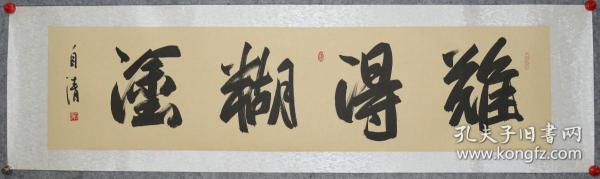 難得糊塗
自清
孔夫子旧书网
www.kongfz.com